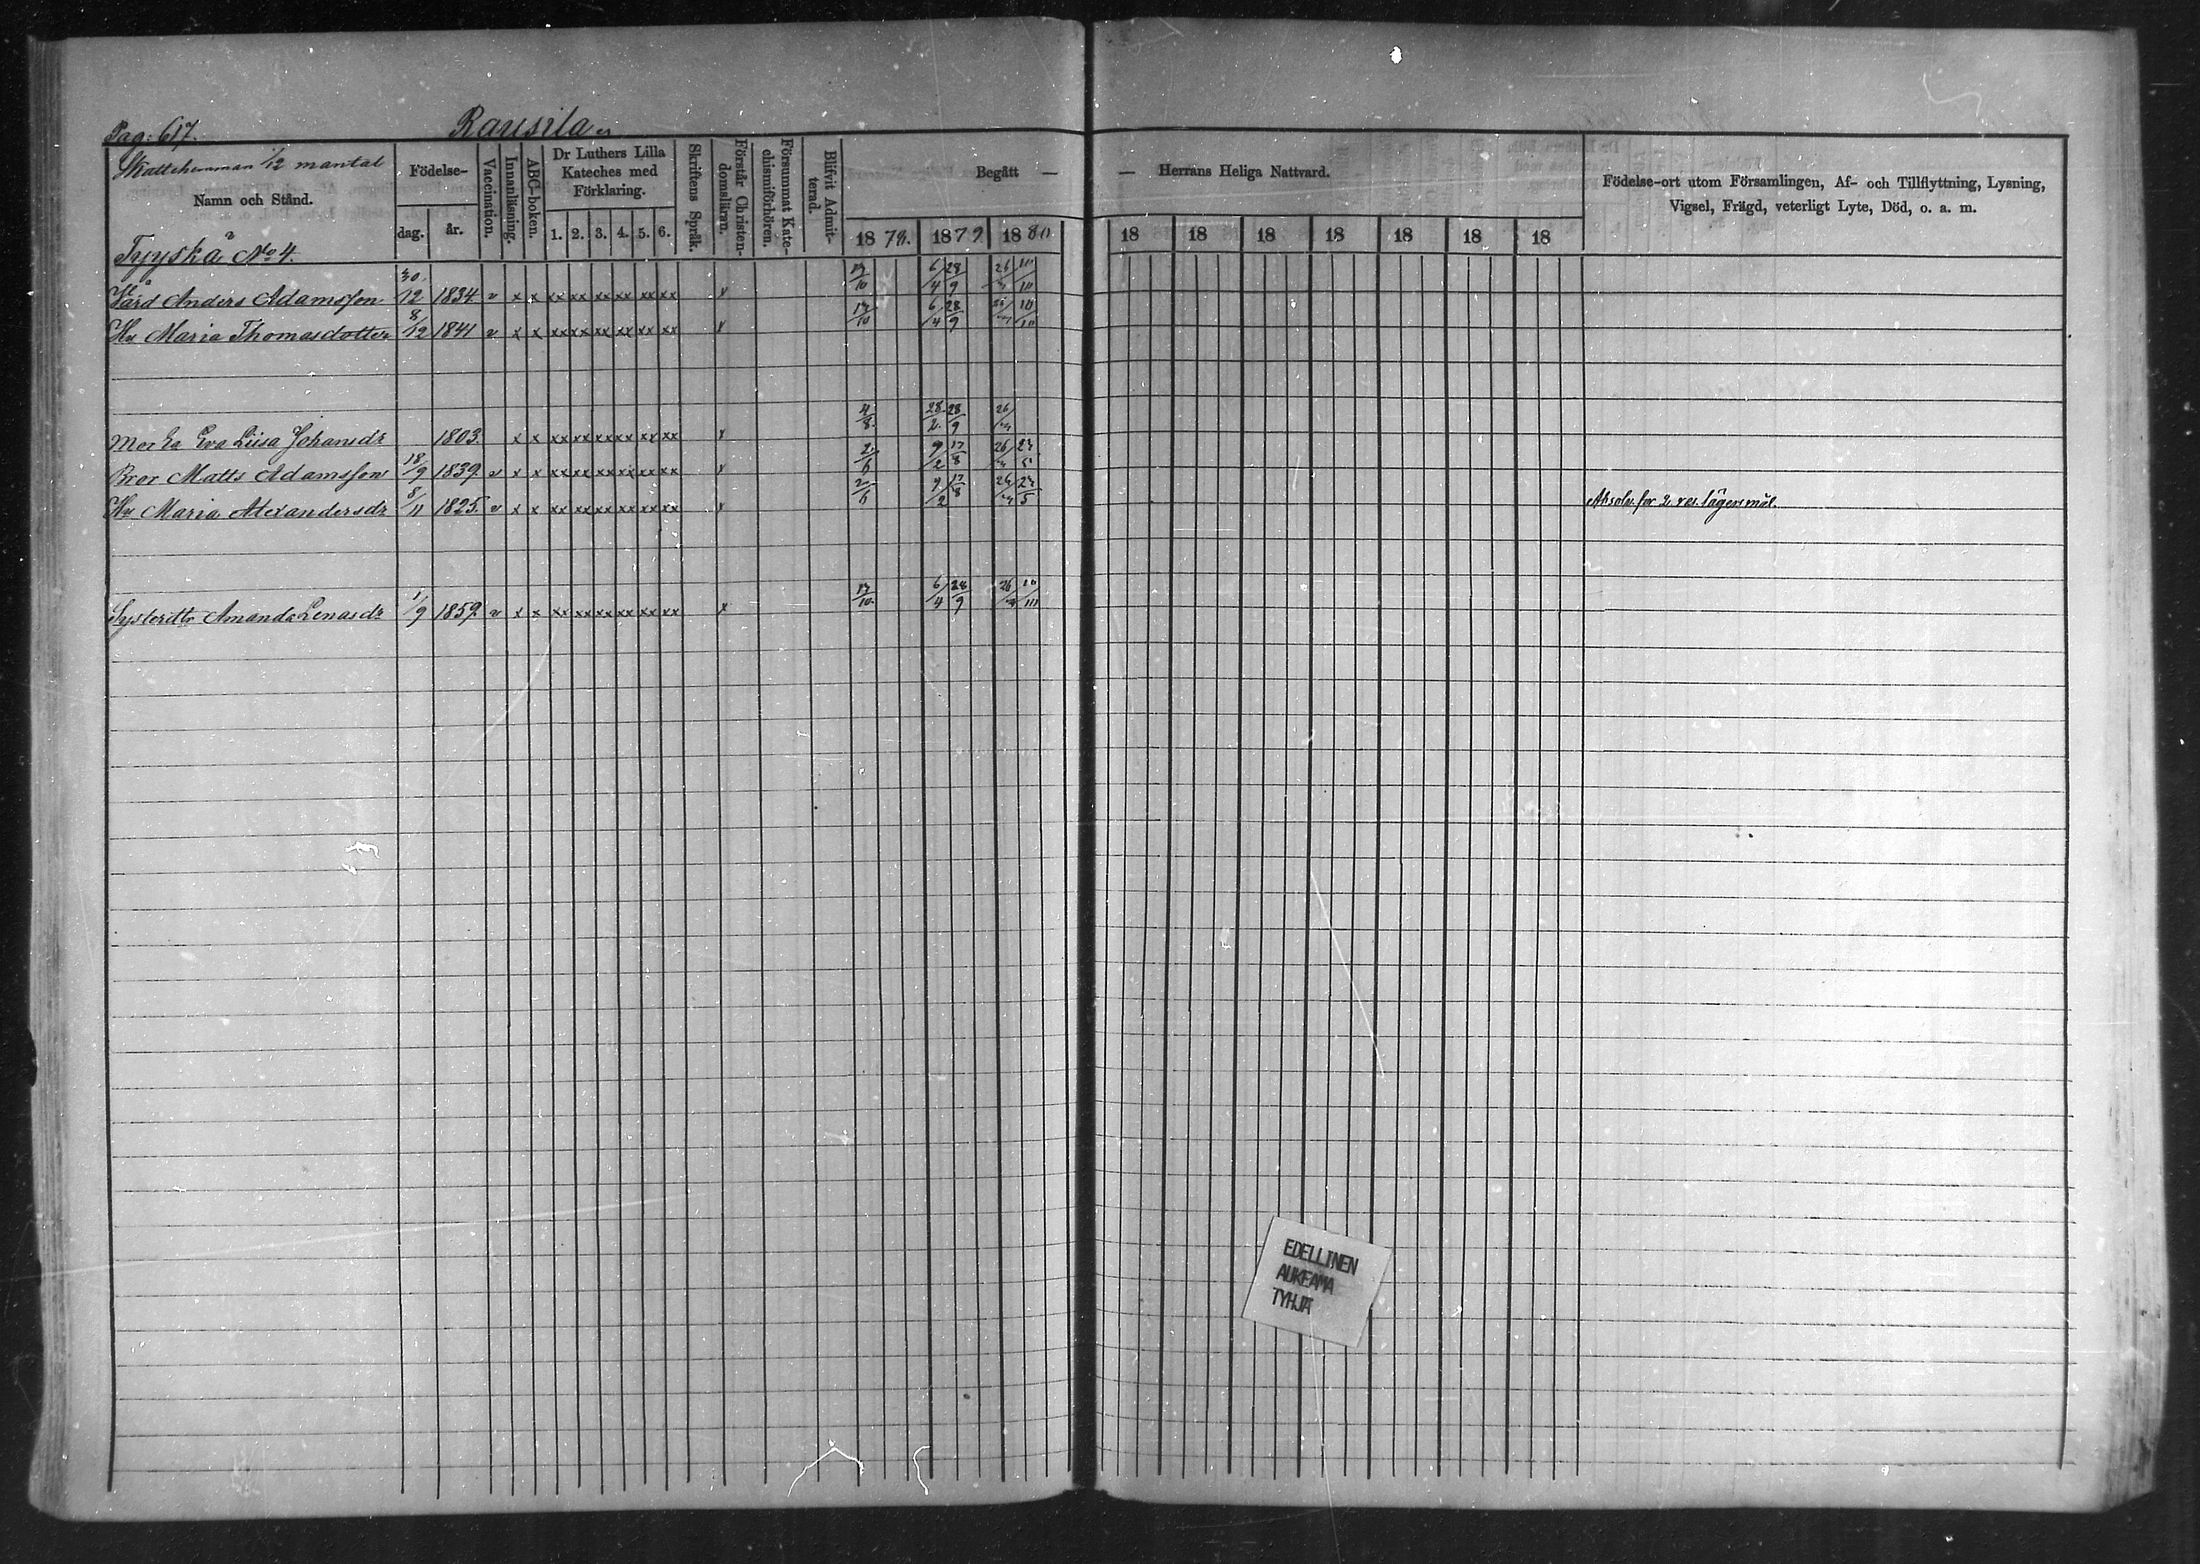 Pag: 617. Rausila
Skattehemman 1/12 mantal
Namn och Stånd.
Födelse-
dag. år.
Vaccination.
Innanläsning.
ABC-boken.
Dr Luthers Lilla
Kateches med
Förklaring.
1. 2. 3. 4. 5. 6.
Skriftens Språk.
Förstår Christen-
domsläran.
Försummat Kate-
chismiförhören.
Blifvit Admit-
terad.
Begått — — Herrans Heliga Nattvard.
1878. 1879. 1880 18 18 18 18 18 18 18
Födelse-ort utom Församlingen, Af- och Tillflyttning, Lysning,
Vigsel, Frägd, veterligt Lyte, Död, o. a. m.
Tyyskä No 4.
Anders Adamsson 30/12 1834. v x x xx xx xx xx xx xx x 6/4 28/9
Hu Maria Thomasdotter 8/12 1841 v x x xx xx xx xx xx xx x 6/4 28/9
Eva Liisa Johansdr 1803. x x xx xx xx xx xx xx x 28/2 28/9
Bror Matts Adamsson 18/9 1839. v x x xx xx xx xx xx xx x 2/6 9/2 17/8
Hu Maria Alexandersdr 8/11 1825. v x x xx xx xx xx xx xx x 2/6 9/2 17/8 Absolv. för 2 res. lägersmål.
Systerdtr Amanda Lenasdr 1/9 1859. v x x xx xx xx xx xx xx x 6/4 28/9
EDELLINEN
AUKEAMA
TYHJÄ